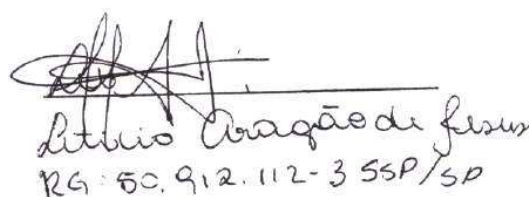 Letícia Aragão de Jesus
RG: 50.912.112-3 SSP/SP